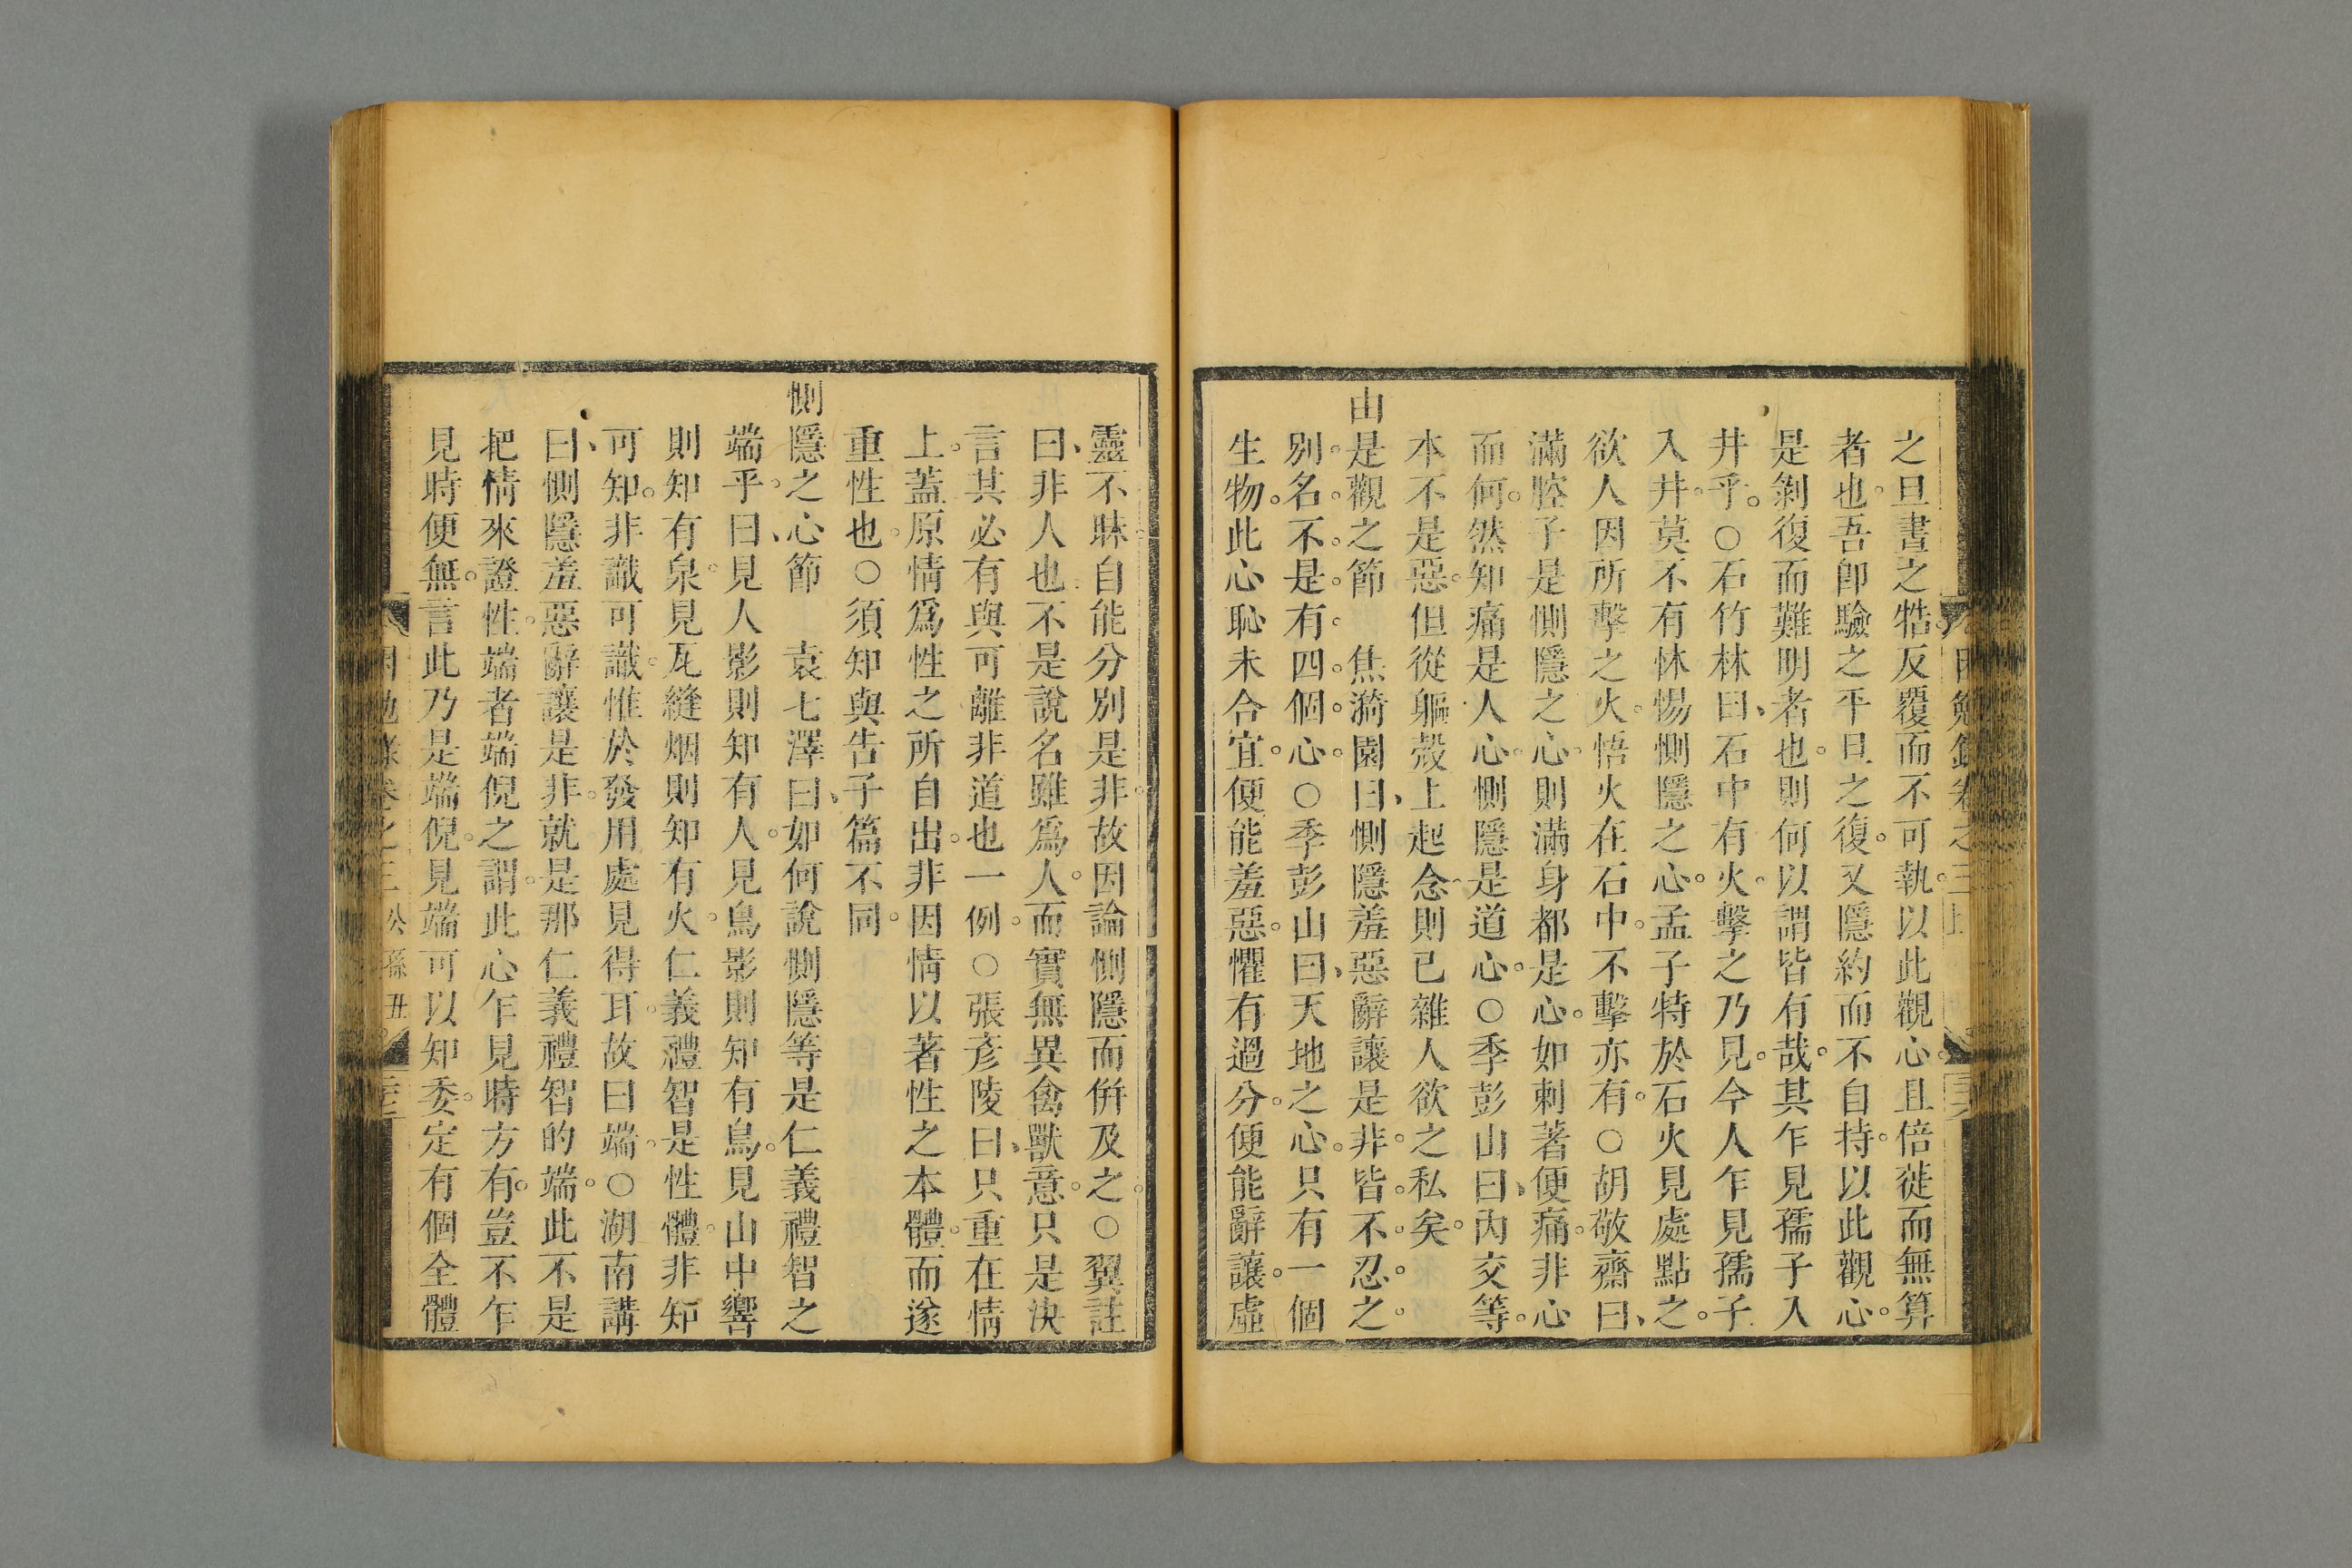 之旦晝之牿反覆而不可執以此觀心且倍徙而無算
者也吾卽驗之平旦之復又隱約而不自持以此觀心
是剝復而難明者也則何以謂皆有哉其乍見孺子入
井乎○石竹林曰石中有火擊之乃見今人乍見孺子
入井莫不有怵惕惻隱之心孟子特於石火見處點之
欲人因所擊之火悟火在石中不擊亦有○胡敬齋曰
滿腔子是惻隱之心則滿身都是心如刺著便痛非心
而何然知痛是人心惻隱是道心○季彭山曰內交等
本不是惡但從軀殼上起念則已雜人欲之私矣
由是觀之節 焦漪園曰惻隱羞惡辭讓是非皆不忍之
別名不是有四個心○季彭山曰天地之心只有一個
生物此心恥未合宜便能羞惡懼有過分便能辭讓虛
靈不昧自能分別是非故因論惻隱而併及之○翼註
曰非人也不是說名雖爲人而實無異禽獸意只是決
言其必有與可離非道也一例○張彥陵曰只重在情
上蓋原情爲性之所自出非因情以著性之本體而遂
重性也○須知與告子篇不同
惻隱之心節 袁七澤曰如何說惻隱等是仁義禮智之
端乎曰見人影則知有人見鳥影則知有鳥見山中響
則知有泉見瓦縫烟則知有火仁義禮智是性體非知
可知非識可識惟於發用處見得耳故曰端○湖南講
曰惻隱羞惡辭讓是非就是那仁義禮智的端此不是
把情來證性端者端倪之謂此心乍見時方有豈不乍
見時便無言此乃是端倪見端可以知委定有個全體